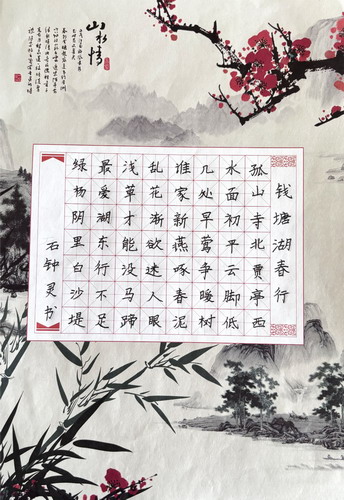 山水情
钱塘湖春行
孤山寺北贾亭西
水面初平云脚低
几处早莺争暖树
谁家新燕啄春泥
乱花渐欲迷人眼
浅草才能没马蹄
最爱湖东行不足
绿杨阴里白沙堤
石钟灵书